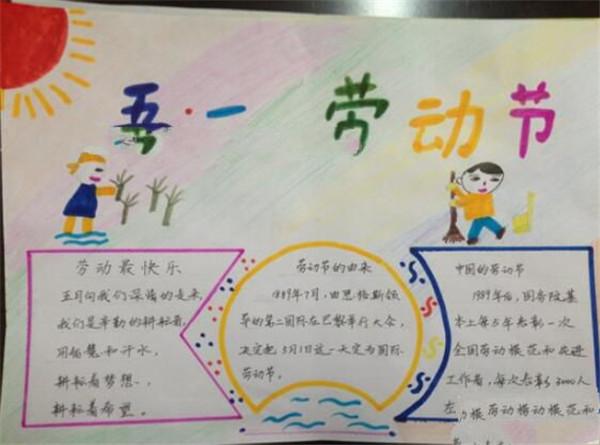 五·一 劳动节
劳动最快乐
五月向我们深情的走来,
我们是辛勤的耕耘者,
用智慧和汗水,
耕耘着梦想、,
耕耘着希望。
劳动节的由来
1889年7月,由恩格斯领
导的第二国际在巴黎举行大会,
决定把5月1日这一天定为国际
劳动节。
中国的劳动节
1989年后,国务院基
本上每5年表彰一次
全国劳动模范和先进
工作者,每次表彰3000人
左
模劳动模动模范和